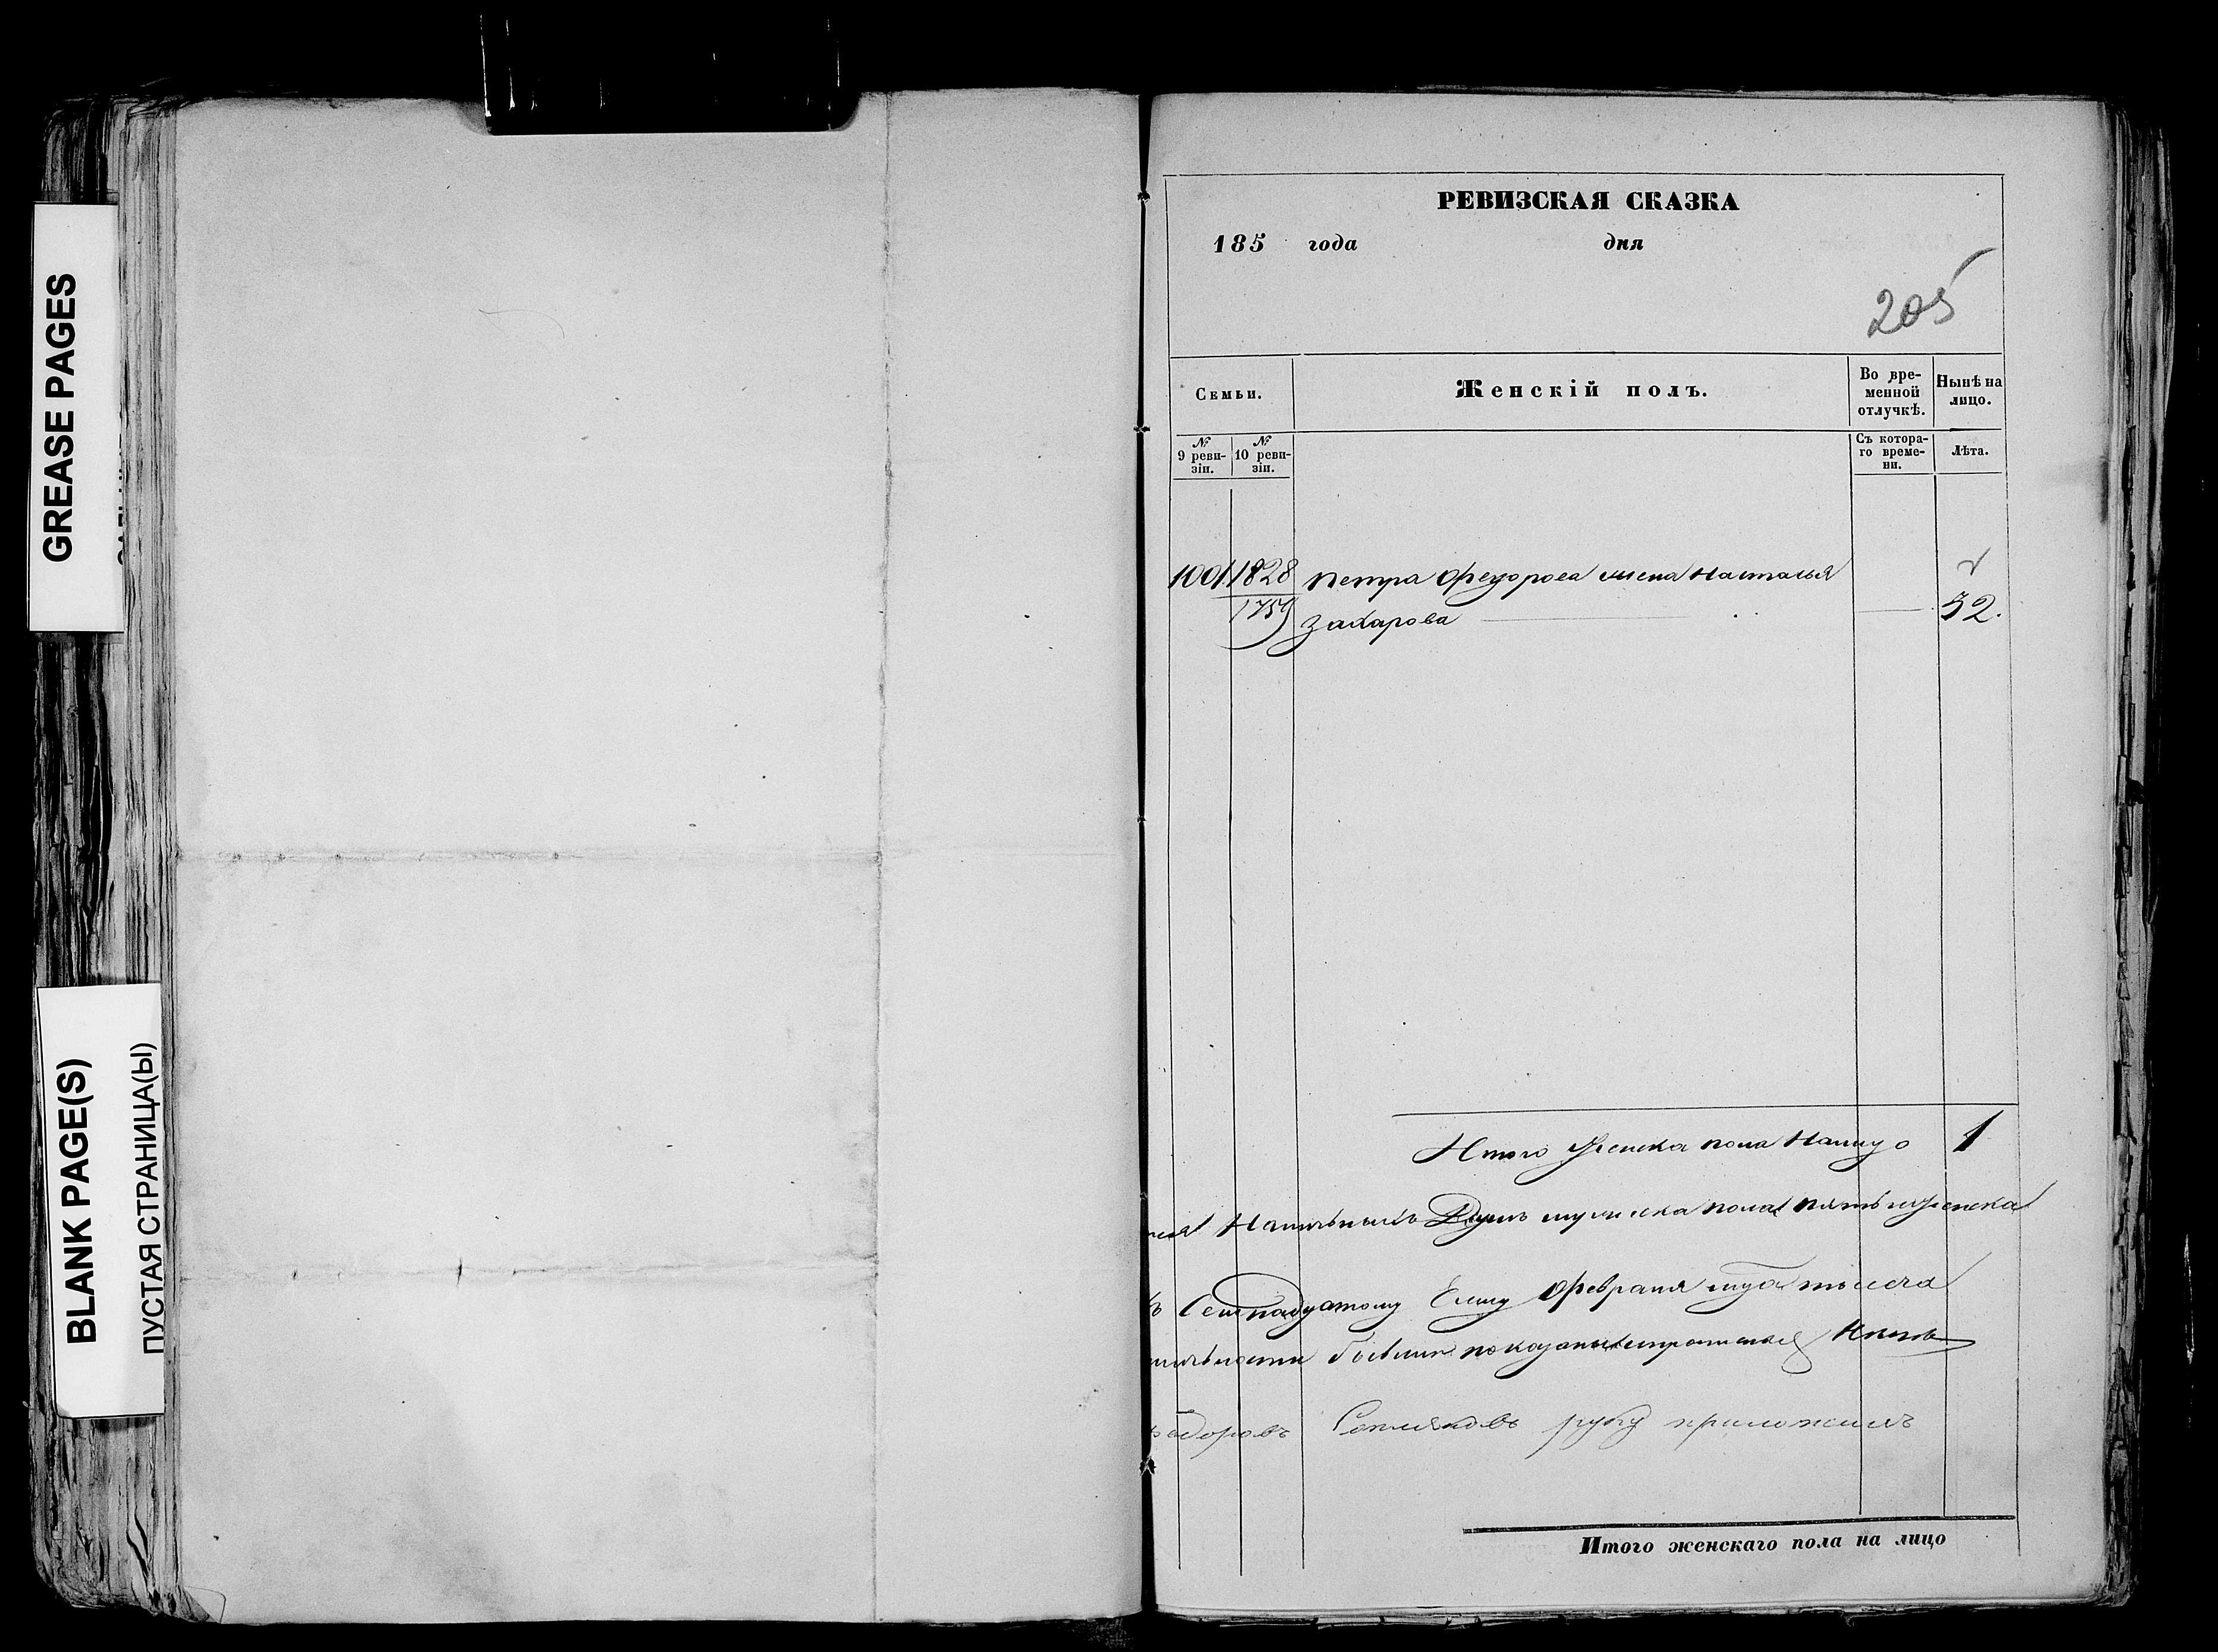 GREASE PAGES
BLANK PAGE(S)
ПУСТАЯ СТРАНИЦА(Ы)
РЕВИЗСКАЯ СКАЗКА
185 года дня
205
Семьи. Женскій полъ. Во вре-менной отлучкѣ. Нынѣ на лицо.
№ 9 реви-зіи. № 10 реви-зіи. Съ котора-го време-ни. Лѣта.
1001 1828 Петра Федорова жена Наталья
1759 Захарова 32.
Итого женска пола налицо 1
Наличныхъ Душъ мужска пола пять женска
Февраля
бывши
Федоровъ руку приложилъ
Итого женскаго пола на лицо